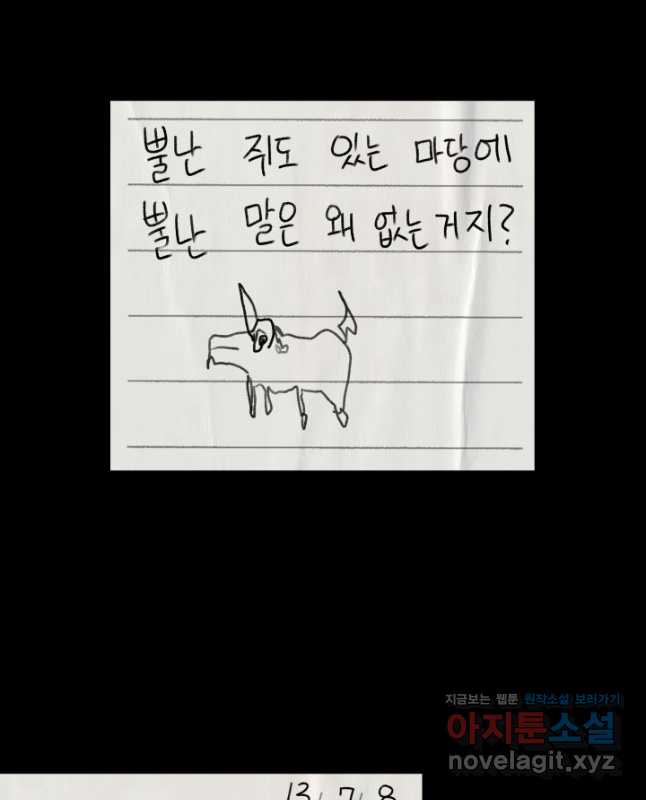 뿔난 쥐도 있는 마당에
뿔난 말은 왜 없는거지?
지금보는 웹툰 원작소설 보러가기
아지툰소설
novelagit.xyz
13. 7. 8